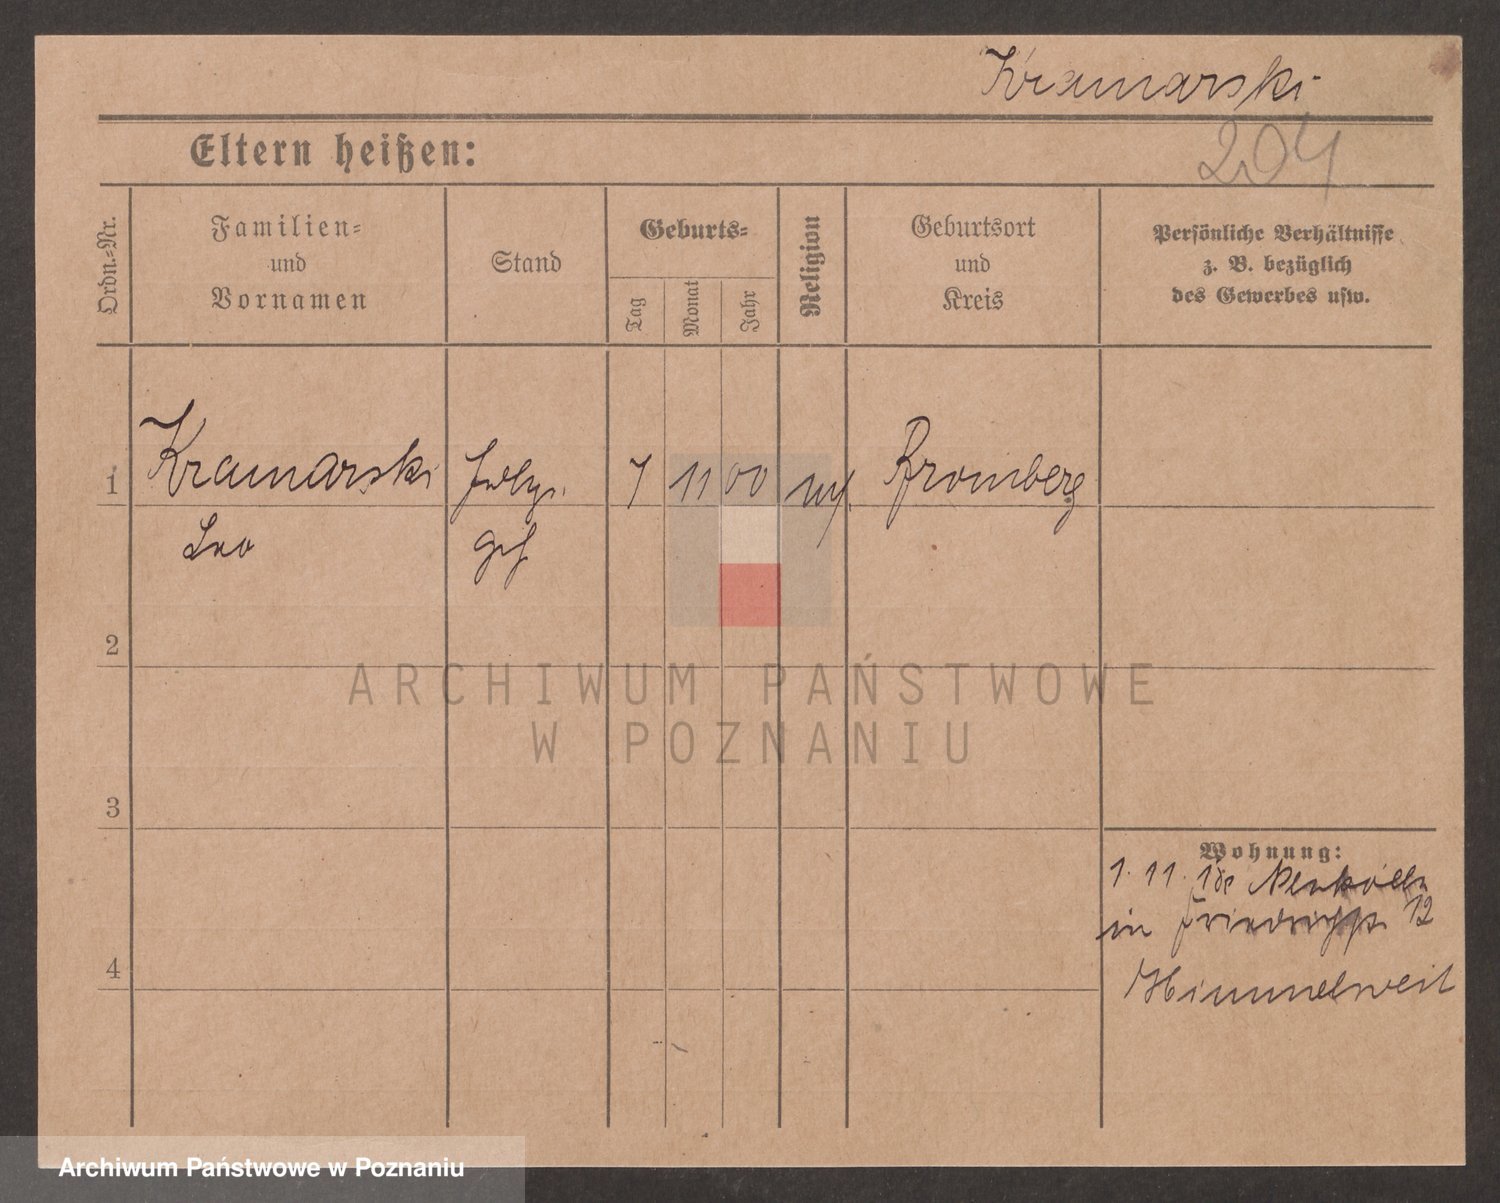 Kramarski
204
Eltern heißen:
Ordn.-Nr.
Familien-
und
Vornamen
Stand
Geburts-
Tag
Monat
Jahr
Religion
Geburtsort
und
Kreis
Persönliche Verhältnisse
z. B. bezüglich
des Gewerbes usw.
1
Kramarski
7
11
00
Bromberg
Leo
2
3
4
Wohnung:
1. 11. 18 Neukölln
in Friedrichstr. 12
Himmelweit
ARCHIWUM PAŃSTWOWE
W POZNANIU
Archiwum Państwowe w Poznaniu